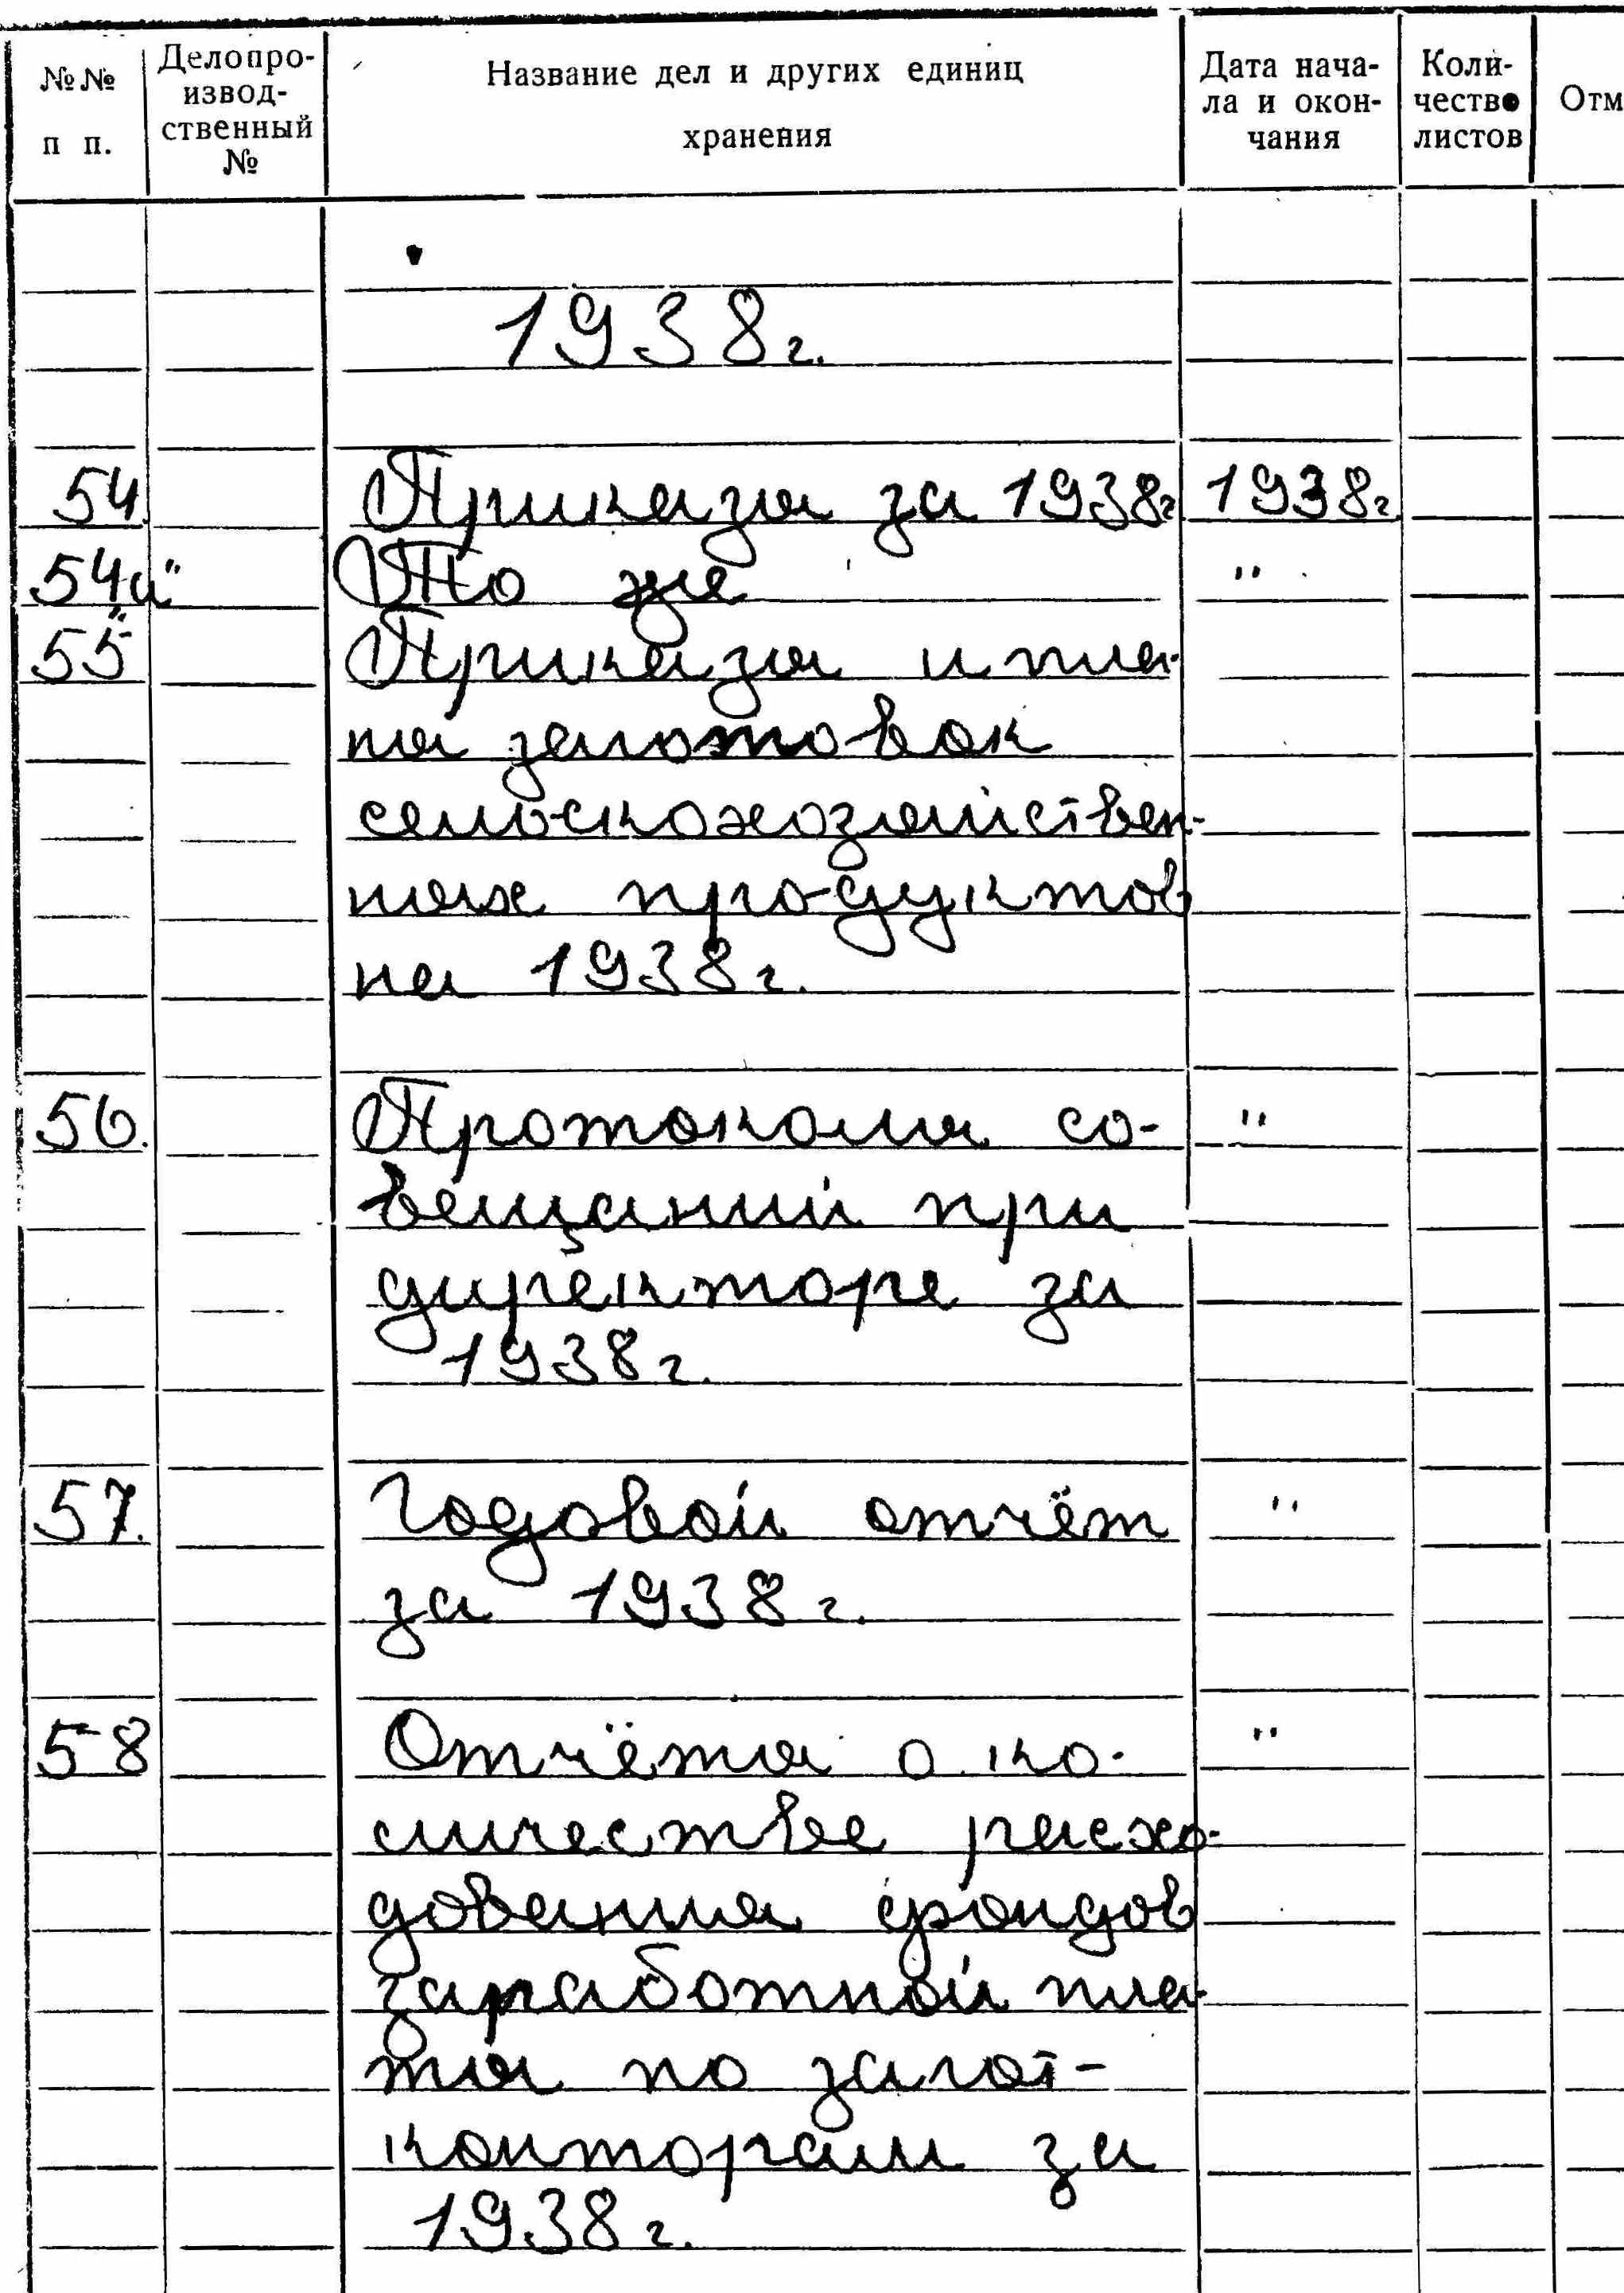 №№ п п.
Делопро-
извод-
ственный
№
Название дел и других единиц
хранения
Дата нача-
ла и окон-
чания
Коли-
чество
листов
Отм
1938г.
54. Приказы за 1938г 1938г.
54„а" То же "
55 Приказы и пла-
ны заготовок
сельскохозяйствен-
ных продуктов
на 1938г.
56. Протоколы со- "
вещаний при
директоре за
1938г.
57. Годовой отчёт "
за 1938г.
58 Отчёты о ко- "
личестве расхо-
дования фондов
заработной пла-
ты по загот-
конторам за
1938г.